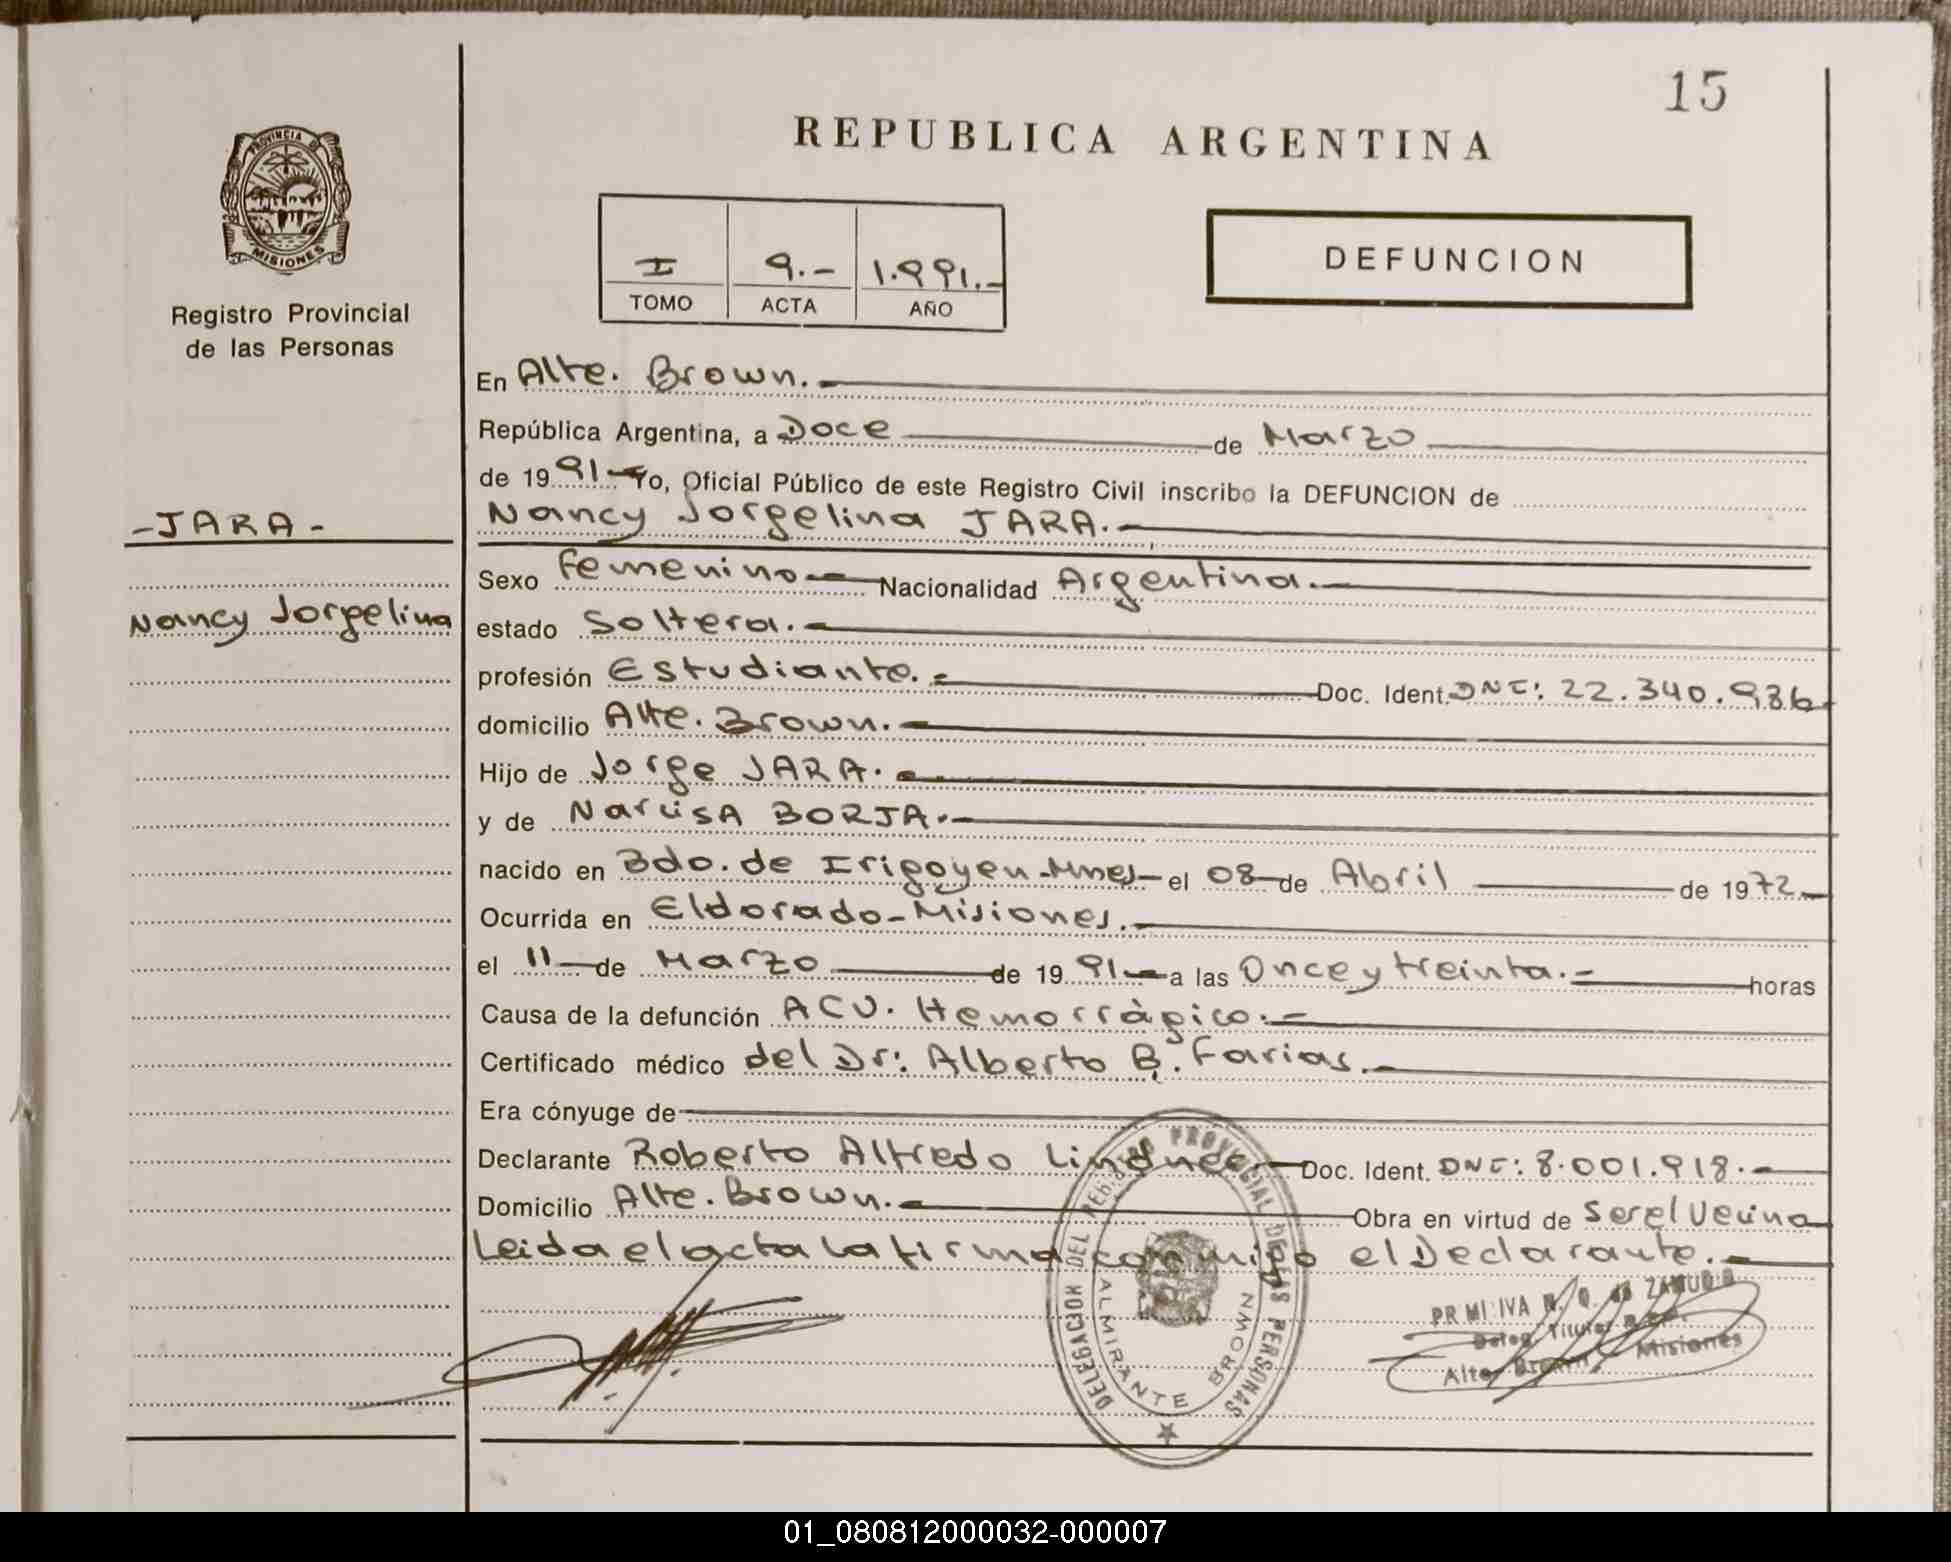 15
REPUBLICA ARGENTINA
PROVINCIA DE
MISIONES
Registro Provincial
de las Personas
I 9.- 1.991.-
TOMO ACTA AÑO
DEFUNCION
En Alte. Brown.
República Argentina, a Doce de Marzo
de 1991 Yo, Oficial Público de este Registro Civil inscribo la DEFUNCION de
- JARA -
Nancy Jorgelina JARA.
Sexo Femenino Nacionalidad Argentina.
Nancy Jorgelina
estado Soltera.
profesión Estudiante. Doc. Ident. DNI: 22.340.936
domicilio Alte. Brown.
Hijo de Jorge JARA.
y de Narcisa BORJA.
nacido en Bdo. de Irigoyen-Mnes el 08 de Abril de 1972
Ocurrida en Eldorado-Misiones.
el 11 de Marzo de 1991 a las Once y treinta. horas
Causa de la defunción ACV. Hemorràgico.
Certificado médico del Dr: Alberto B. Farias.
Era cónyuge de
Declarante Roberto Alfredo Lindner. Doc. Ident. DNI: 8.001.918.
Domicilio Alte. Brown. Obra en virtud de ser el Vecino
Leida el acta la firma conmigo el Declarante.
DELEGACION DEL REGISTRO PROVINCIAL DE LAS PERSONAS
ALMIRANTE BROWN
PRIMITIVA N. Q. de ZAMUDIO
Deleg. Titular
Alte. Brown Misiones
01_080812000032-000007